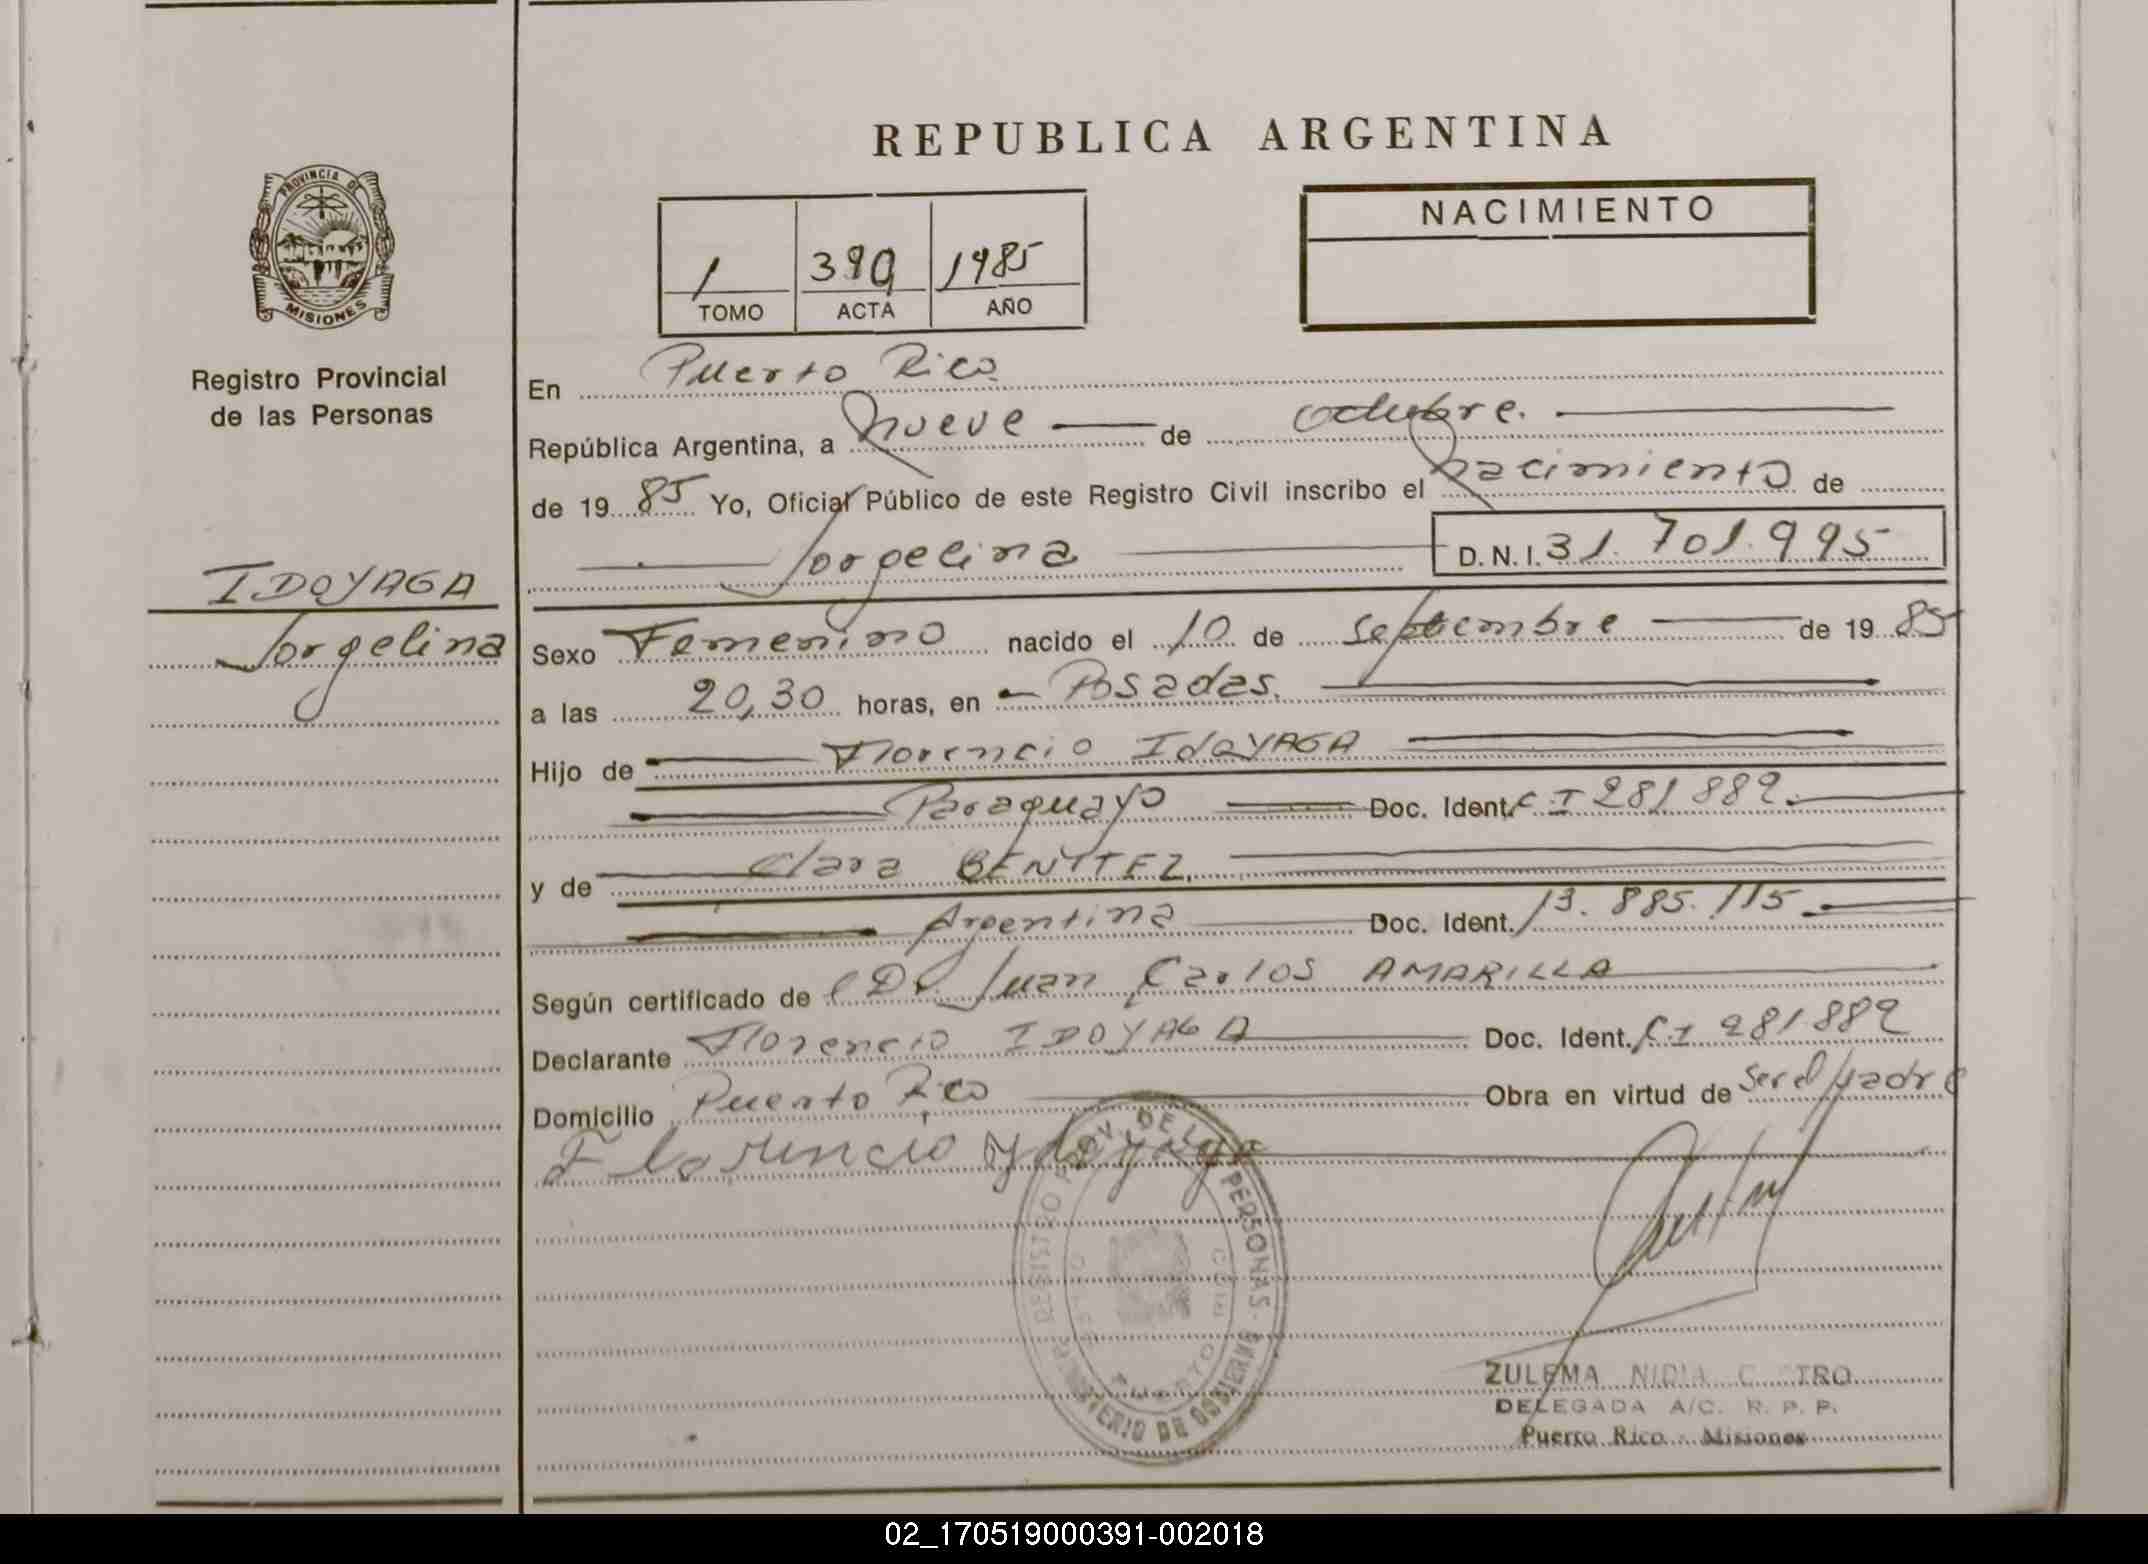 REPUBLICA ARGENTINA
PROVINCIA DE
MISIONES
Registro Provincial
de las Personas
1 TOMO
ACTA
1985 AÑO
NACIMIENTO
En Puerto Rico
República Argentina, a nueve de octubre.
de 19 85 Yo, Oficial Público de este Registro Civil inscribo el nacimiento de
Jorgelina D.N.I. 31.701.995
IDOYAGA
Jorgelina
Sexo Femenino nacido el 10 de septiembre de 19 85
a las 20,30 horas, en Posadas.
Hijo de Florencio IdOYAGA
Paraguayo Doc. Ident. C I 281882.
y de Clara BENITEZ.
Argentina Doc. Ident. 13.885.115
Según certificado de Dr Juan Carlos AMARILLA
Declarante Florencio IDOYAGA Doc. Ident. C.I 281882
Domicilio Puerto Rico Obra en virtud de ser el Padre
Florencio Ydoyaga
REGISTRO PROV. DE LAS PERSONAS
MINISTERIO DE GOBIERNO
PUERTO RICO
ZULEMA NIDIA
DELEGADA A/C. R. P. P.
Puerto Rico - Misiones
02_170519000391-002018